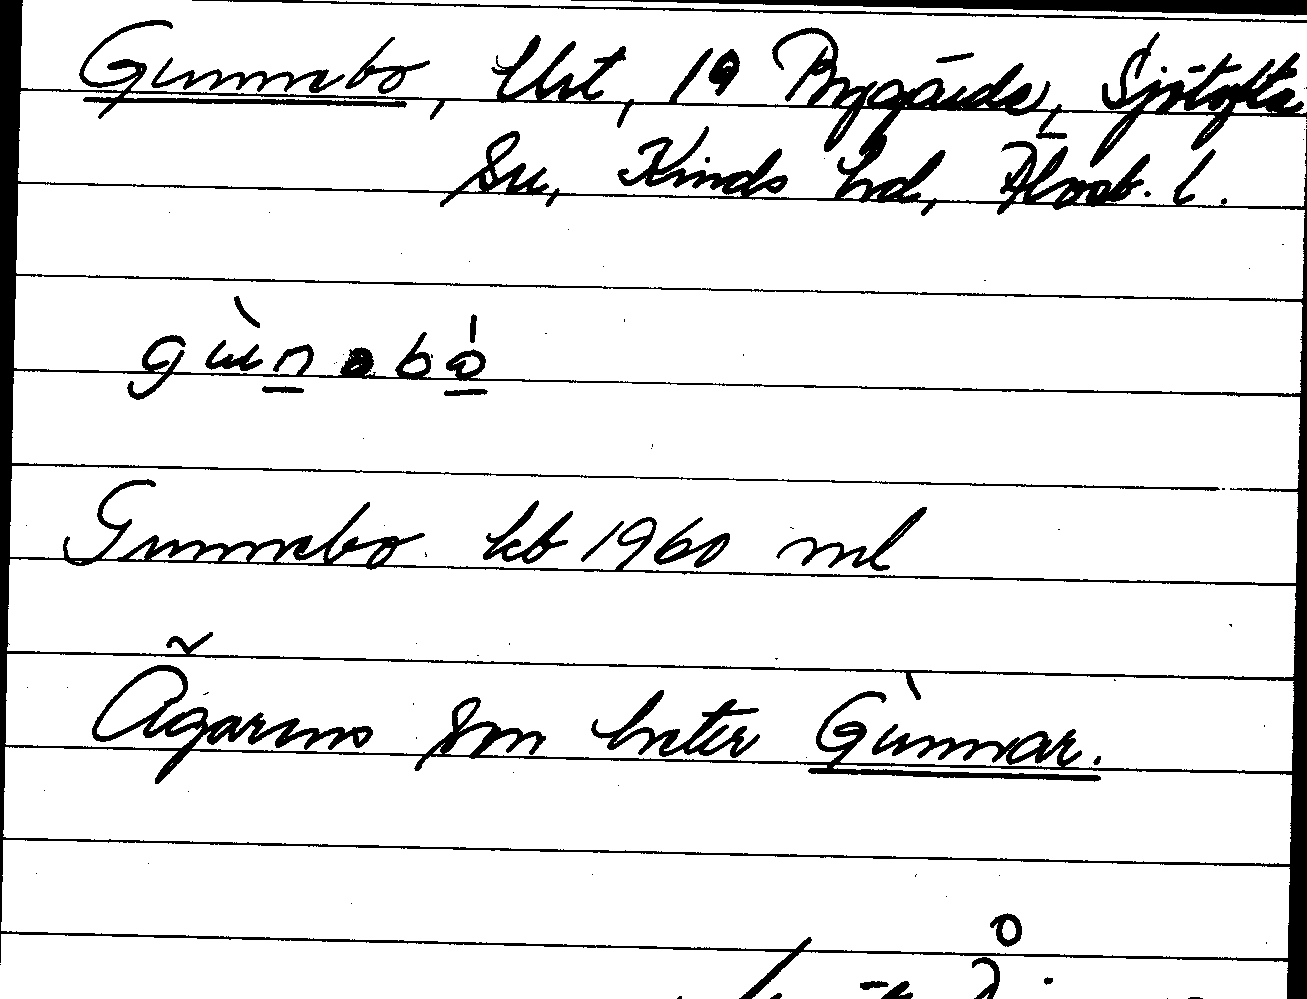 Gunnebo, lht, 19 Bygärde, Sjötofta
sn, Kinds hd, Älvsb. l.
gùnəbó
Gunnebo kb 1960 ml
Ägarens son heter Gùnnar.